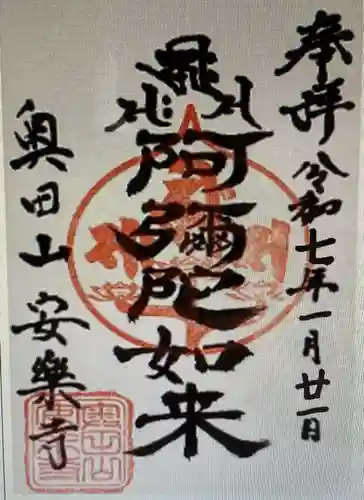 奉拝
令和七年一月廿一日
阿弥陀如来
奥田山 安樂寺